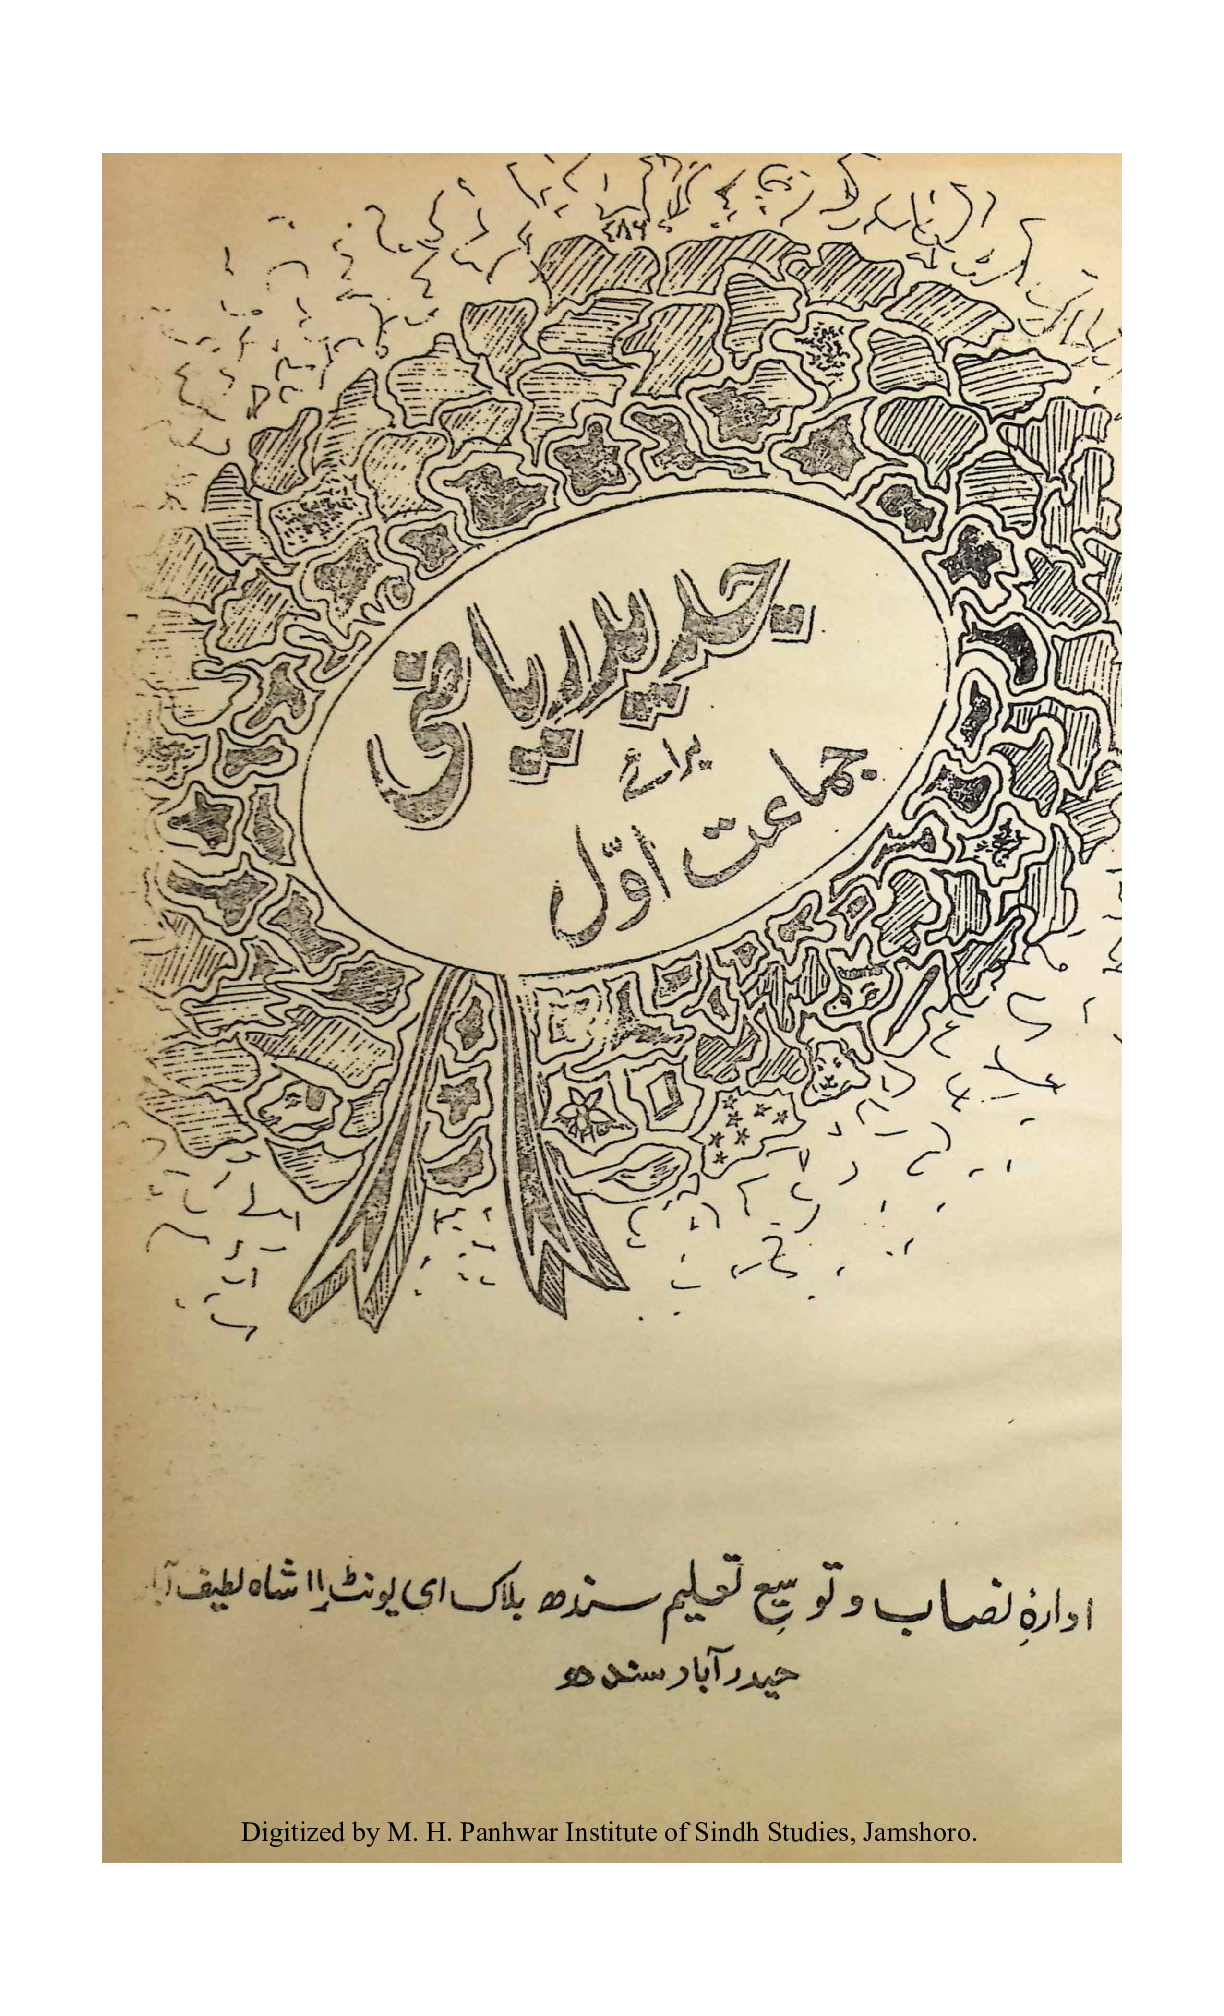 ۷۸۶
جدید ریاضی
برائے
جماعت اوّل
ادارۂ نصاب و توسیع تعلیم سندھ بلاک ای یونٹ ۱۱ شاہ لطیف آباد
حیدرآباد سندھ
Digitized by M. H. Panhwar Institute of Sindh Studies, Jamshoro.